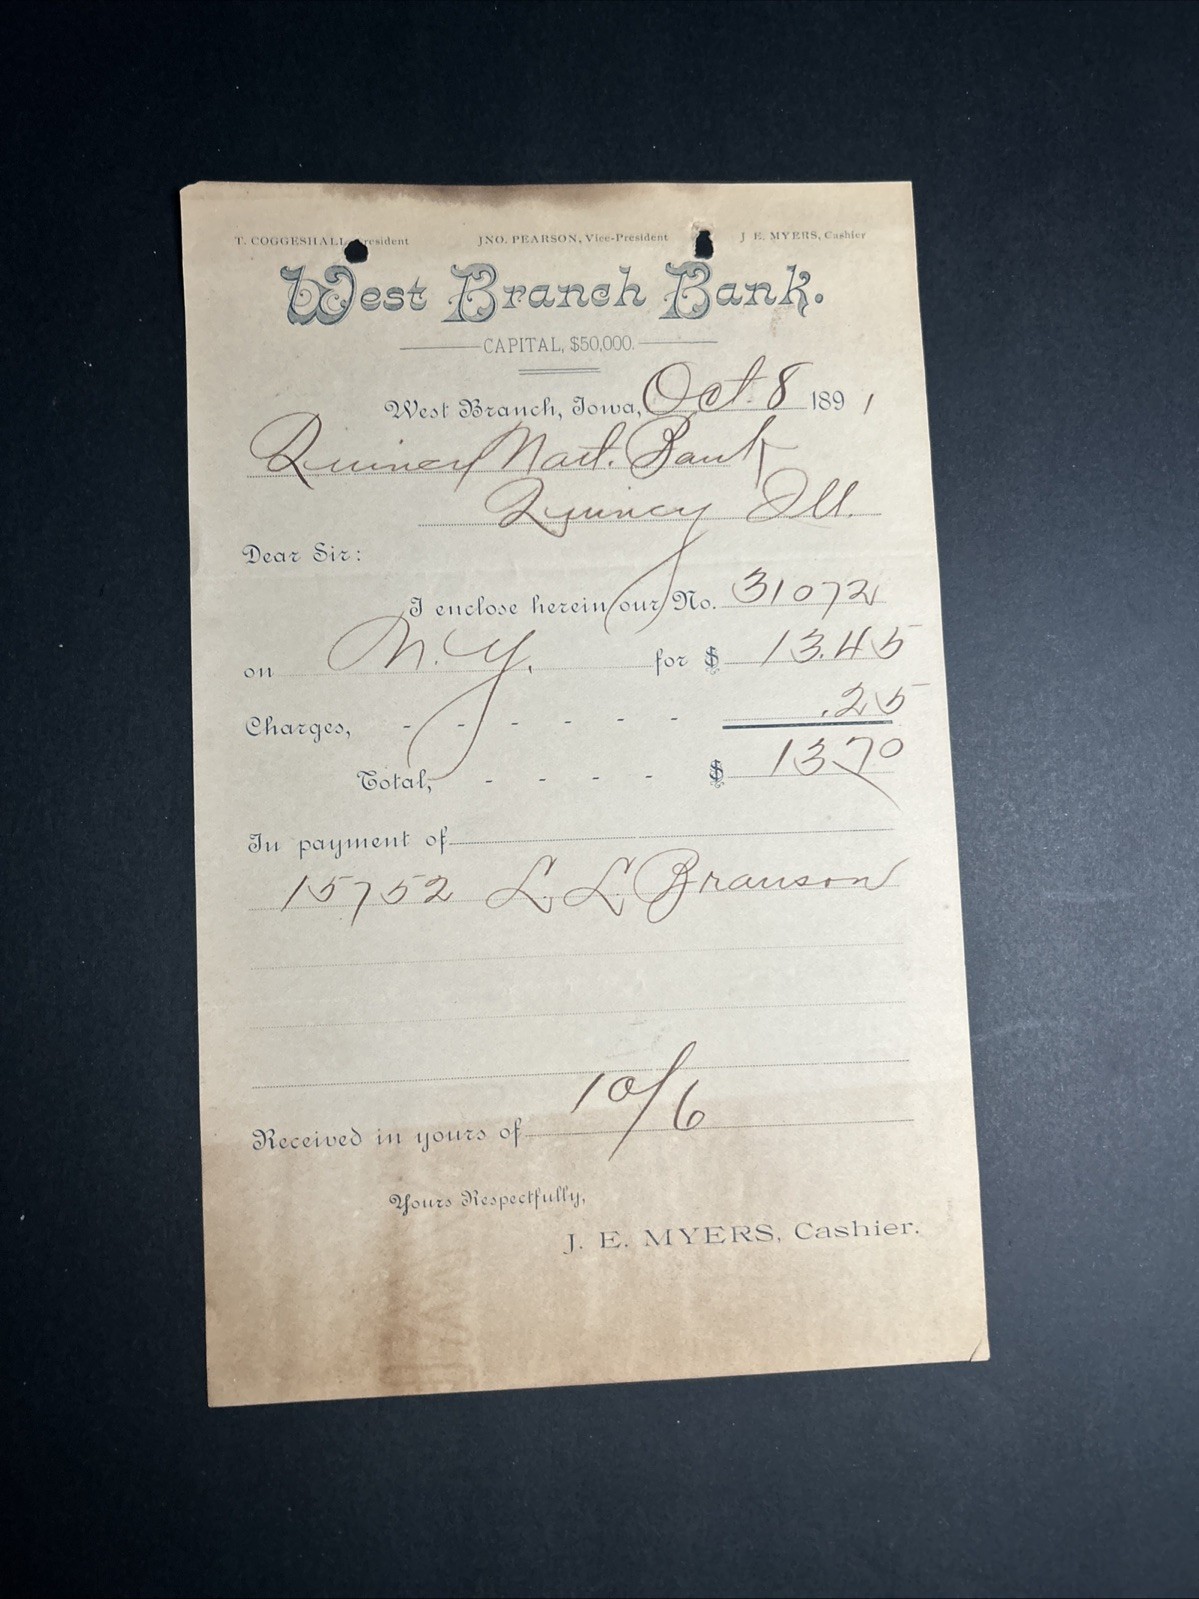 T. COGGESHALL, President JNO. PEARSON, Vice-President J. E. MYERS, Cashier
West Branch Bank.
CAPITAL, $50,000.
West Branch, Iowa, Oct. 8 1891
Quincy Natl. Bank
Quincy Ill.
Dear Sir:
I enclose herein our No. 31072
on N.Y. for $ 13.45
Charges, - - - - - - .25
Total, - - - - $ 13.70
In payment of
15752 L. L. Branson
Received in yours of 10/6
Yours Respectfully,
J. E. MYERS, Cashier.